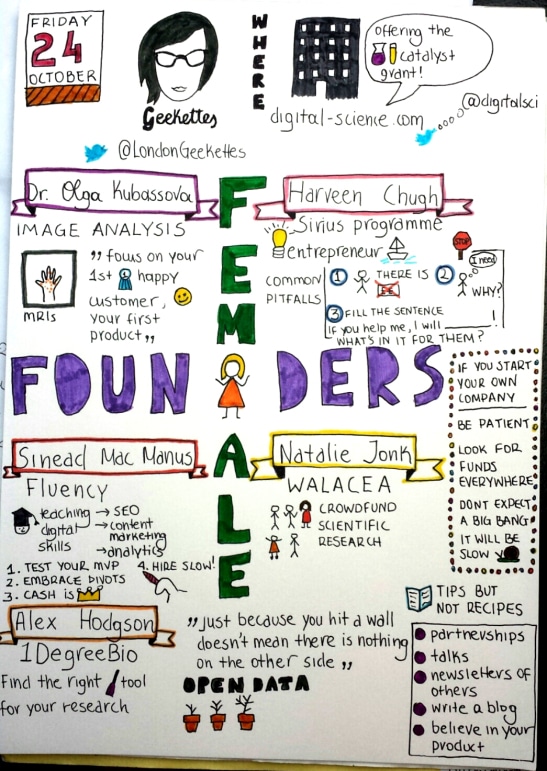 FRIDAY
24
OCTOBER
Geekettes
@LondonGeekettes
WHERE
offering the
catalyst
grant!
digital-science.com
@digitalsci
FEMALE
FOUNDERS
Dr. Olga Kubassova
IMAGE ANALYSIS
MRIs
„focus on your
1st happy
customer,
your first
product„
Harveen Chugh
Sirius programme
entrepreneur
STOP
COMMON
PITFALLS
1 THERE IS
2 I need
WHY?
3 FILL THE SENTENCE
If you help me, I will ________!
WHAT'S IN IT FOR THEM?
IF YOU START
YOUR OWN
COMPANY
BE PATIENT
LOOK FOR
FUNDS
EVERYWHERE
DONT EXPECT
A BIG BANG
IT WILL BE
SLOW
Sinead Mac Manus
Fluency
teaching
digital
skills
→ SEO
→ content
marketing
→ analytics
1. TEST YOUR MVP
2. EMBRACE PIVOTS
3. CASH is
4. HIRE SLOW!
Natalie Jonk
WALACEA
CROWDFUND
SCIENTIFIC
RESEARCH
Alex Hodgson
1DegreeBio
Find the right tool
for your research
„just because you hit a wall
doesn't mean there is nothing
on the other side„
OPEN DATA
TIPS BUT
NOT RECIPES
partnerships
talks
newsletters of
others
write a blog
believe in your
product